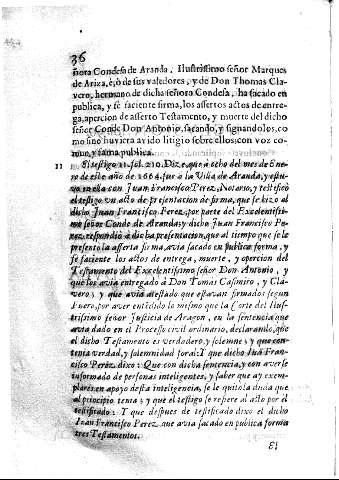 36
ñora Condesa de Aranda, Ilustrissimo señor Marques
de Ariza, è, ò de sus valedores, y de Don Thomas Cla-
vero, hermano de dicha señora Condesa, ha sacado en
publica, y fè faciente firma, los assertos actos de entre-
ga, apercion de asserto Testamento, y muerte del dicho
señor Conde Don Antonio, sacando, y signandolos, co-
mo sino huviera avido litigio sobre ellos, con voz co-
mun, y fama publica.
11 El testigo 11. fol. 210. Dize, que à ocho del mes de Ene-
ro de este año de 1664. fue à la Villa de Aranda, y estu-
vo en ella con Juan Francisco Perez, Notario, y testificò
el testigo un acto de presentacion de firma, que se hizo al
dicho Juan Francisco Perez, por parte del Excelentissi-
mo señor Conde de Aranda; y dicho Juan Francisco Pe-
rez respondiò à dicha presentacion, que al tiempo que se le
presentò la asserta firma, avia sacado en publica forma, y
fe faciente los actos de entrega, muerte, y apercion del
Testamento del Excelentissimo señor Don Antonio, y
que los avia entregado à Don Tomas Casimiro, y Cla-
vero; y que avia assestado que estavan firmados segun
Fuero, por aver entendido lo mesmo que la Corte del Ilus-
trissimo señor Justicia de Aragon, en la sentencia que
avia dado en el Processo civil ordinario, declarando, que
el dicho Testamento es verdadero, y solemne; y que con-
tenia verdad, y solemnidad foral: Y que dicho Juā Fran-
cisco Perez dixo: Que con dicha sentencia, y con averse
informado de personas inteligentes, y saber que ay exem-
plares en apoyo desta inteligencia, se le quitò la duda que
al principio tenia; y que el testigo se refiere al acto por el
testificado: Y que despues de testificado dixo el dicho
Juan Francisco Perez, que avia sacado en publica forma
tres Testamentos.
El